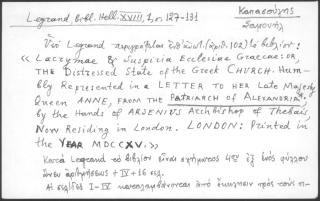 Legrand, Bibl. Hell. XVIII, 1, σ. 127-131
Καπασούλης
Σαμουήλ
Ὑπὸ Legrand περιγράφεται ἐνθ' ἀνωτ. (ἀριθ. 102) τὸ βιβλίον:
« Lacrymae & Suspiria Ecclesiae Graecae: OR,
THE Distressed State of the Greek CHURCH. Hum-
bly Represented in a LETTER to HER Late Majesty
Queen ANNE, FROM the PATRIARCH of ALEXANDRIA,
by the Hands of ARSENIUS Archbishop of Thebais
Now Residing in London. LONDON: Printed in
the YEAR MDCCXV. »
Κατὰ Legrand τὸ βιβλίον εἶναι σχήματος 4ου ἐξ ἑνὸς φύλλου
ἄνευ ἀριθμήσεως + IV + 16 σελ.
Αἱ σελίδες I-IV καταλαμβάνονται ἀπὸ ἔκκλησιν πρὸς τοὺς